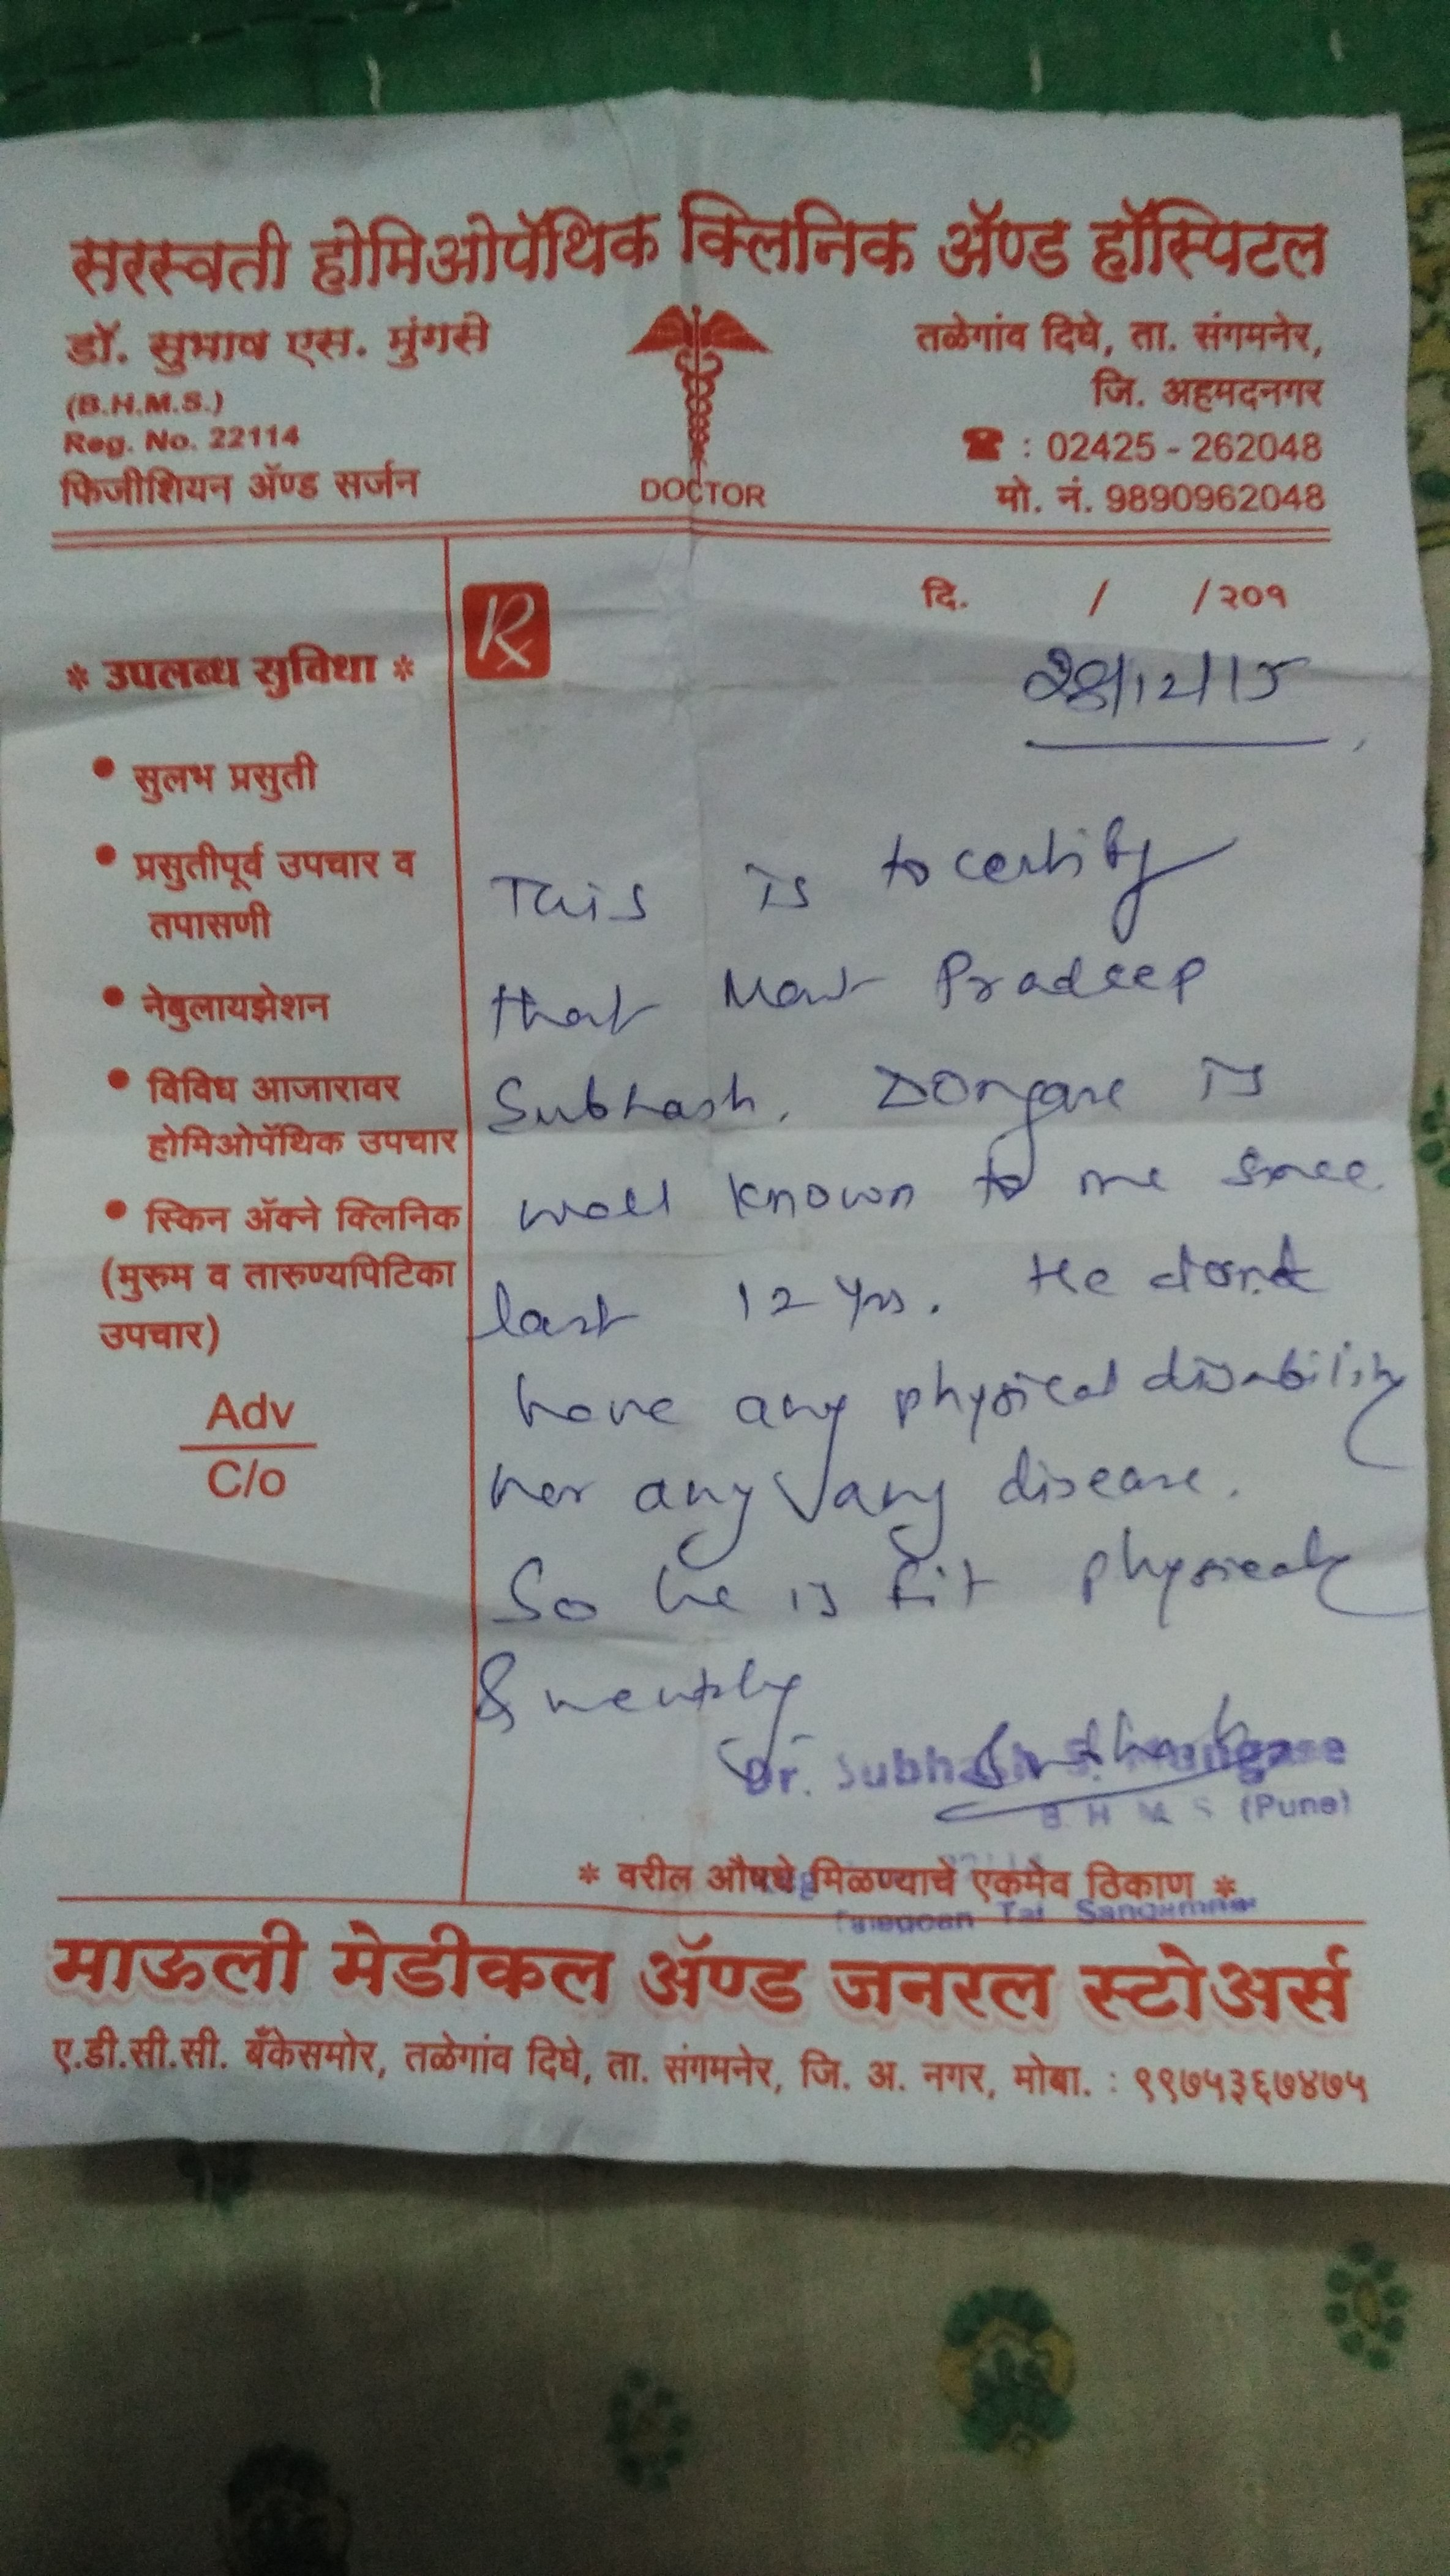 सरस्वती होमिओपॅथिक क्लिनिक ॲण्ड हॉस्पिटल
डॉ. सुभाष एस. मुंगसे
(B.H.M.S.)
Reg. No. 22114
फिजीशियन ॲण्ड सर्जन
DOCTOR
तळेगांव दिघे, ता. संगमनेर,
जि. अहमदनगर
☎ : 02425 - 262048
मो. नं. 9890962048
दि. / /२०१
/12/15
* उपलब्ध सुविधा *
• सुलभ प्रसुती
• प्रसुतीपूर्व उपचार व
तपासणी
• नेबुलायझेशन
• विविध आजारावर
होमिओपॅथिक उपचार
• स्किन ॲक्ने क्लिनिक
(मुरुम व तारुण्यपिटिका
उपचार)
Adv
C/o
Rx
This is to certify
that Pradeep
Subhash. Dongare is
well known to me since
last 12 yrs. He dont
have any physical disability
ner any any disease.
So he is fit physicaly
& mentaly
Dr. Subhash S. Mungase
B H M S (Pune)
* वरील औषधे मिळण्याचे एकमेव ठिकाण *
Talegoan Tal Sangamner
माऊली मेडीकल ॲण्ड जनरल स्टोअर्स
ए.डी.सी.सी. बँकेसमोर, तळेगांव दिघे, ता. संगमनेर, जि. अ. नगर, मोबा. : ९९७५३६७४७५